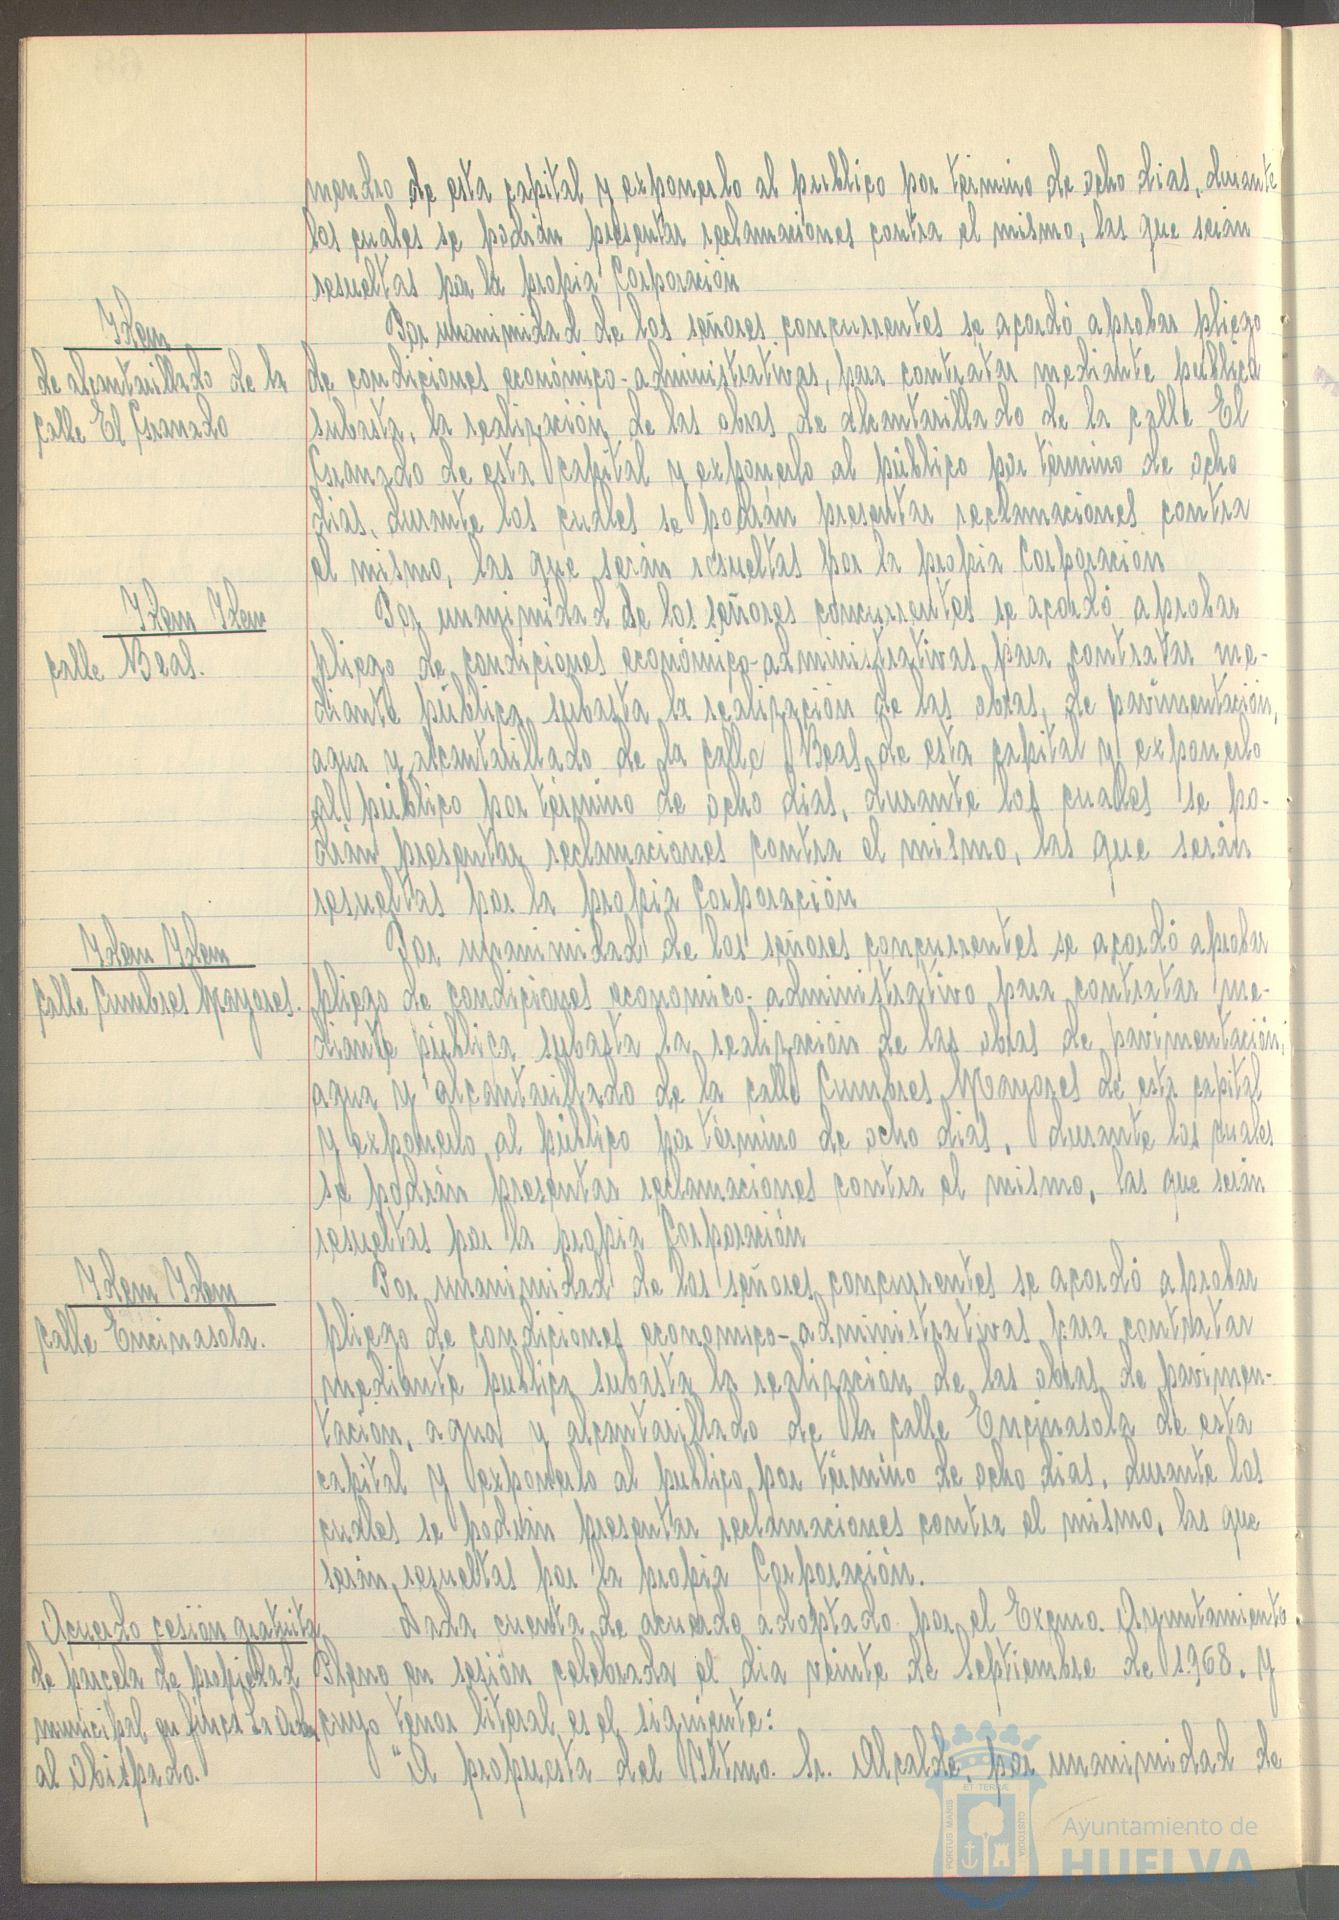 mendro de esta capital y exponerlo al publico por término de ocho dias, durante
los cuales se podrán presentar reclamaciones contra el mismo, las que serán
resueltas por la propia Corporación
Idem
de alcantarillado de la
calle El Granado
Por unanimidad de los señores concurrentes se acordó aprobar pliego
de condiciones económico-administrativas, para contratar mediante pública
subasta, la realización de las obras de alcantarillado de la calle El
Granado de esta capital y exponerlo al público por término de ocho
dias, durante los cuales se podrán presentar reclamaciones contra
el mismo, las que serán resueltas por la propia Corporación
Idem Idem
calle Beas.
Por unanimidad de los señores concurrentes se acordó aprobar
pliego de condiciones económico-administrativas para contratar me-
diante pública subasta la realización de las obras, de pavimentación,
agua y alcantarillado de la calle Beas de esta capital y exponerlo
al público por término de ocho dias, durante los cuales se po-
drán presentar reclamaciones contra el mismo, las que serán
resueltas por la propia Corporación
Idem Idem
calle Cumbres Mayores.
Por unanimidad de los señores concurrentes se acordó aprobar
pliego de condiciones economico-administrativo para contratar me-
diante pública subasta la realización de las obras de pavimentación,
agua y alcantarillado de la calle Cumbres Mayores de esta capital
y exponerlo al público por término de ocho dias, durante los cuales
se podrán presentar reclamaciones contra el mismo, las que serán
resueltas por la propia Corporación
Idem Idem
calle Encinasola.
Por unanimidad de los señores concurrentes se acordó aprobar
pliego de condiciones economico-administrativas para contratar
mediante publica subasta la realización de las obras de pavimen-
tación, agua y alcantarillado de la calle Encinasola de esta
capital y exponerlo al publico por término de ocho dias, durante los
cuales se podrán presentar reclamaciones contra el mismo, las que
serán resueltas por la propia Corporación.
Acuerdo cesión gratuita
de parcela de propiedad
municipal en finca La
al Obispado.
Dada cuenta de acuerdo adoptado por el Excmo. Ayuntamiento
Pleno en sesión celebrada el dia veinte de Septiembre de 1.968, y
cuyo tenor literal es el siguiente:
"A propuesta del Iltmo. Sr. Alcalde, por unanimidad de
PORTUS MARIS ET TERRAE CUSTODIA
Ayuntamiento de
HUELVA